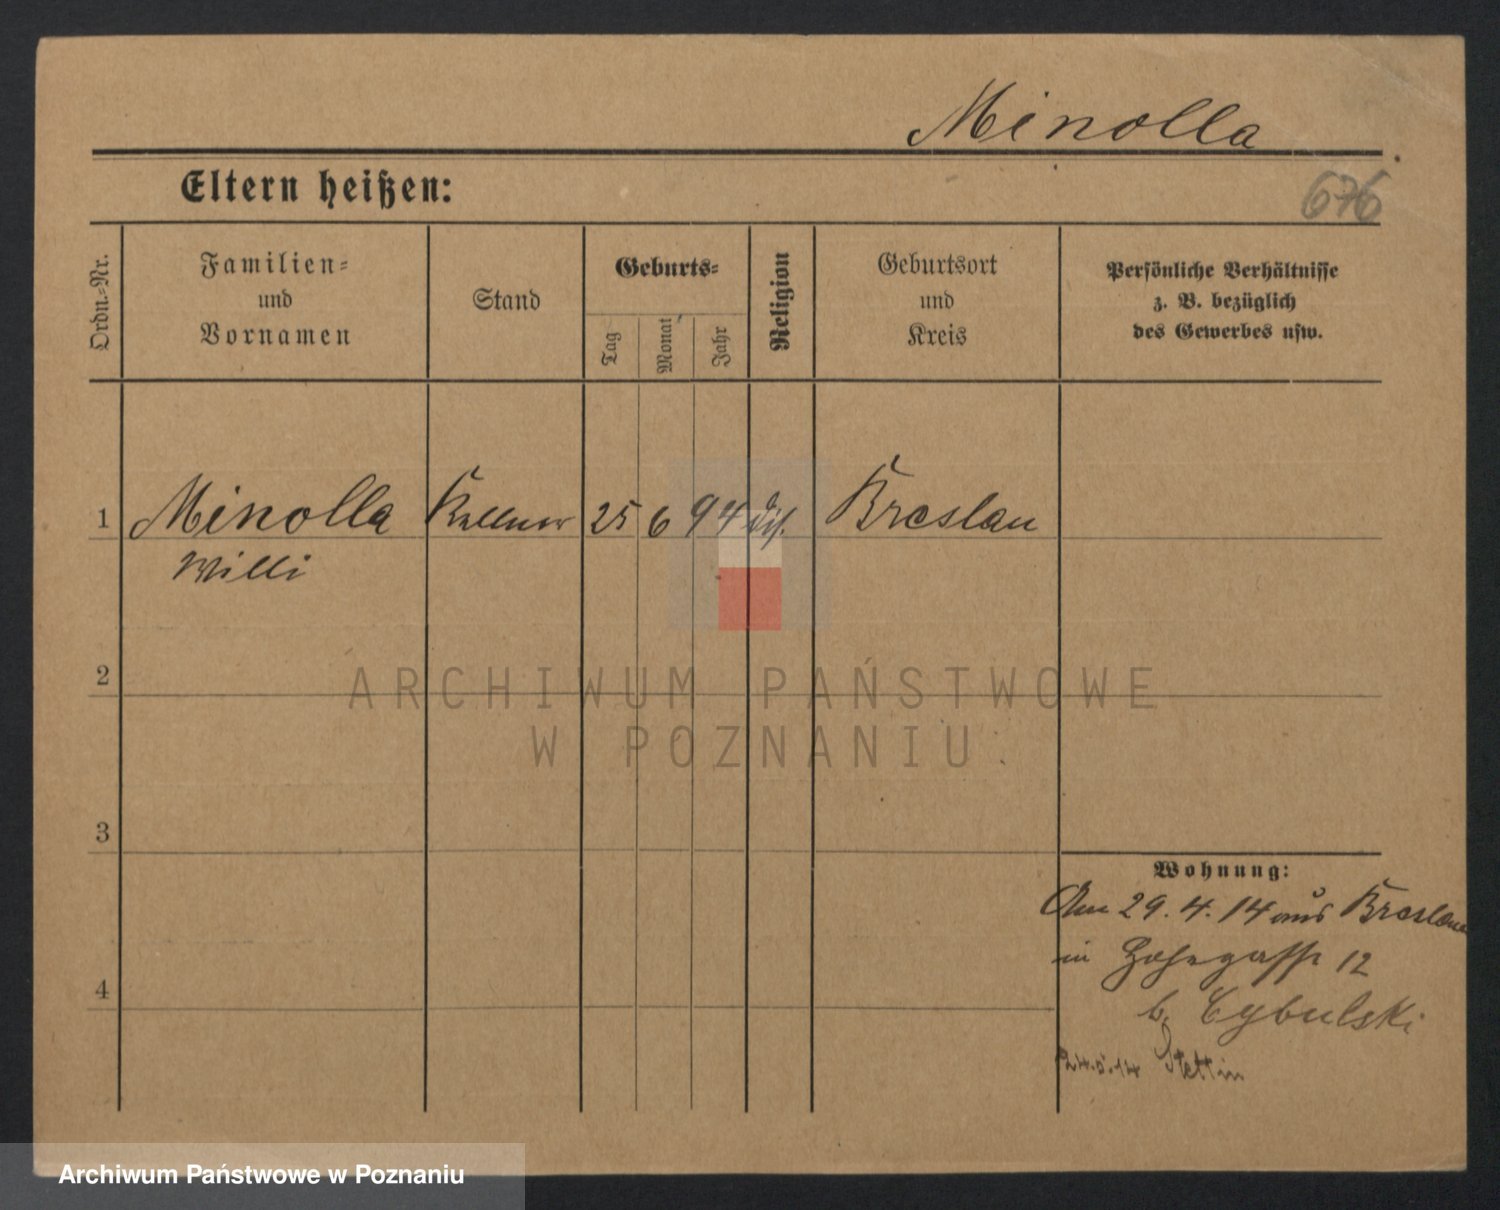 Minolla
Eltern heißen:
676
Ordn.-Nr.
Familien-
und
Vornamen
Stand
Geburts-
Tag
Monat
Jahr
Religion
Geburtsort
und
Kreis
Persönliche Verhältnisse
z. B. bezüglich
des Gewerbes usw.
1
Minolla Kellner 25 6 94 Breslau
Willi
2
ARCHIWUM PAŃSTWOWE
W POZNANIU
3
Wohnung:
Am 29.4.14 aus Breslau
in 12
b. Cybulski
4
24.5.14 Stettin
Archiwum Państwowe w Poznaniu